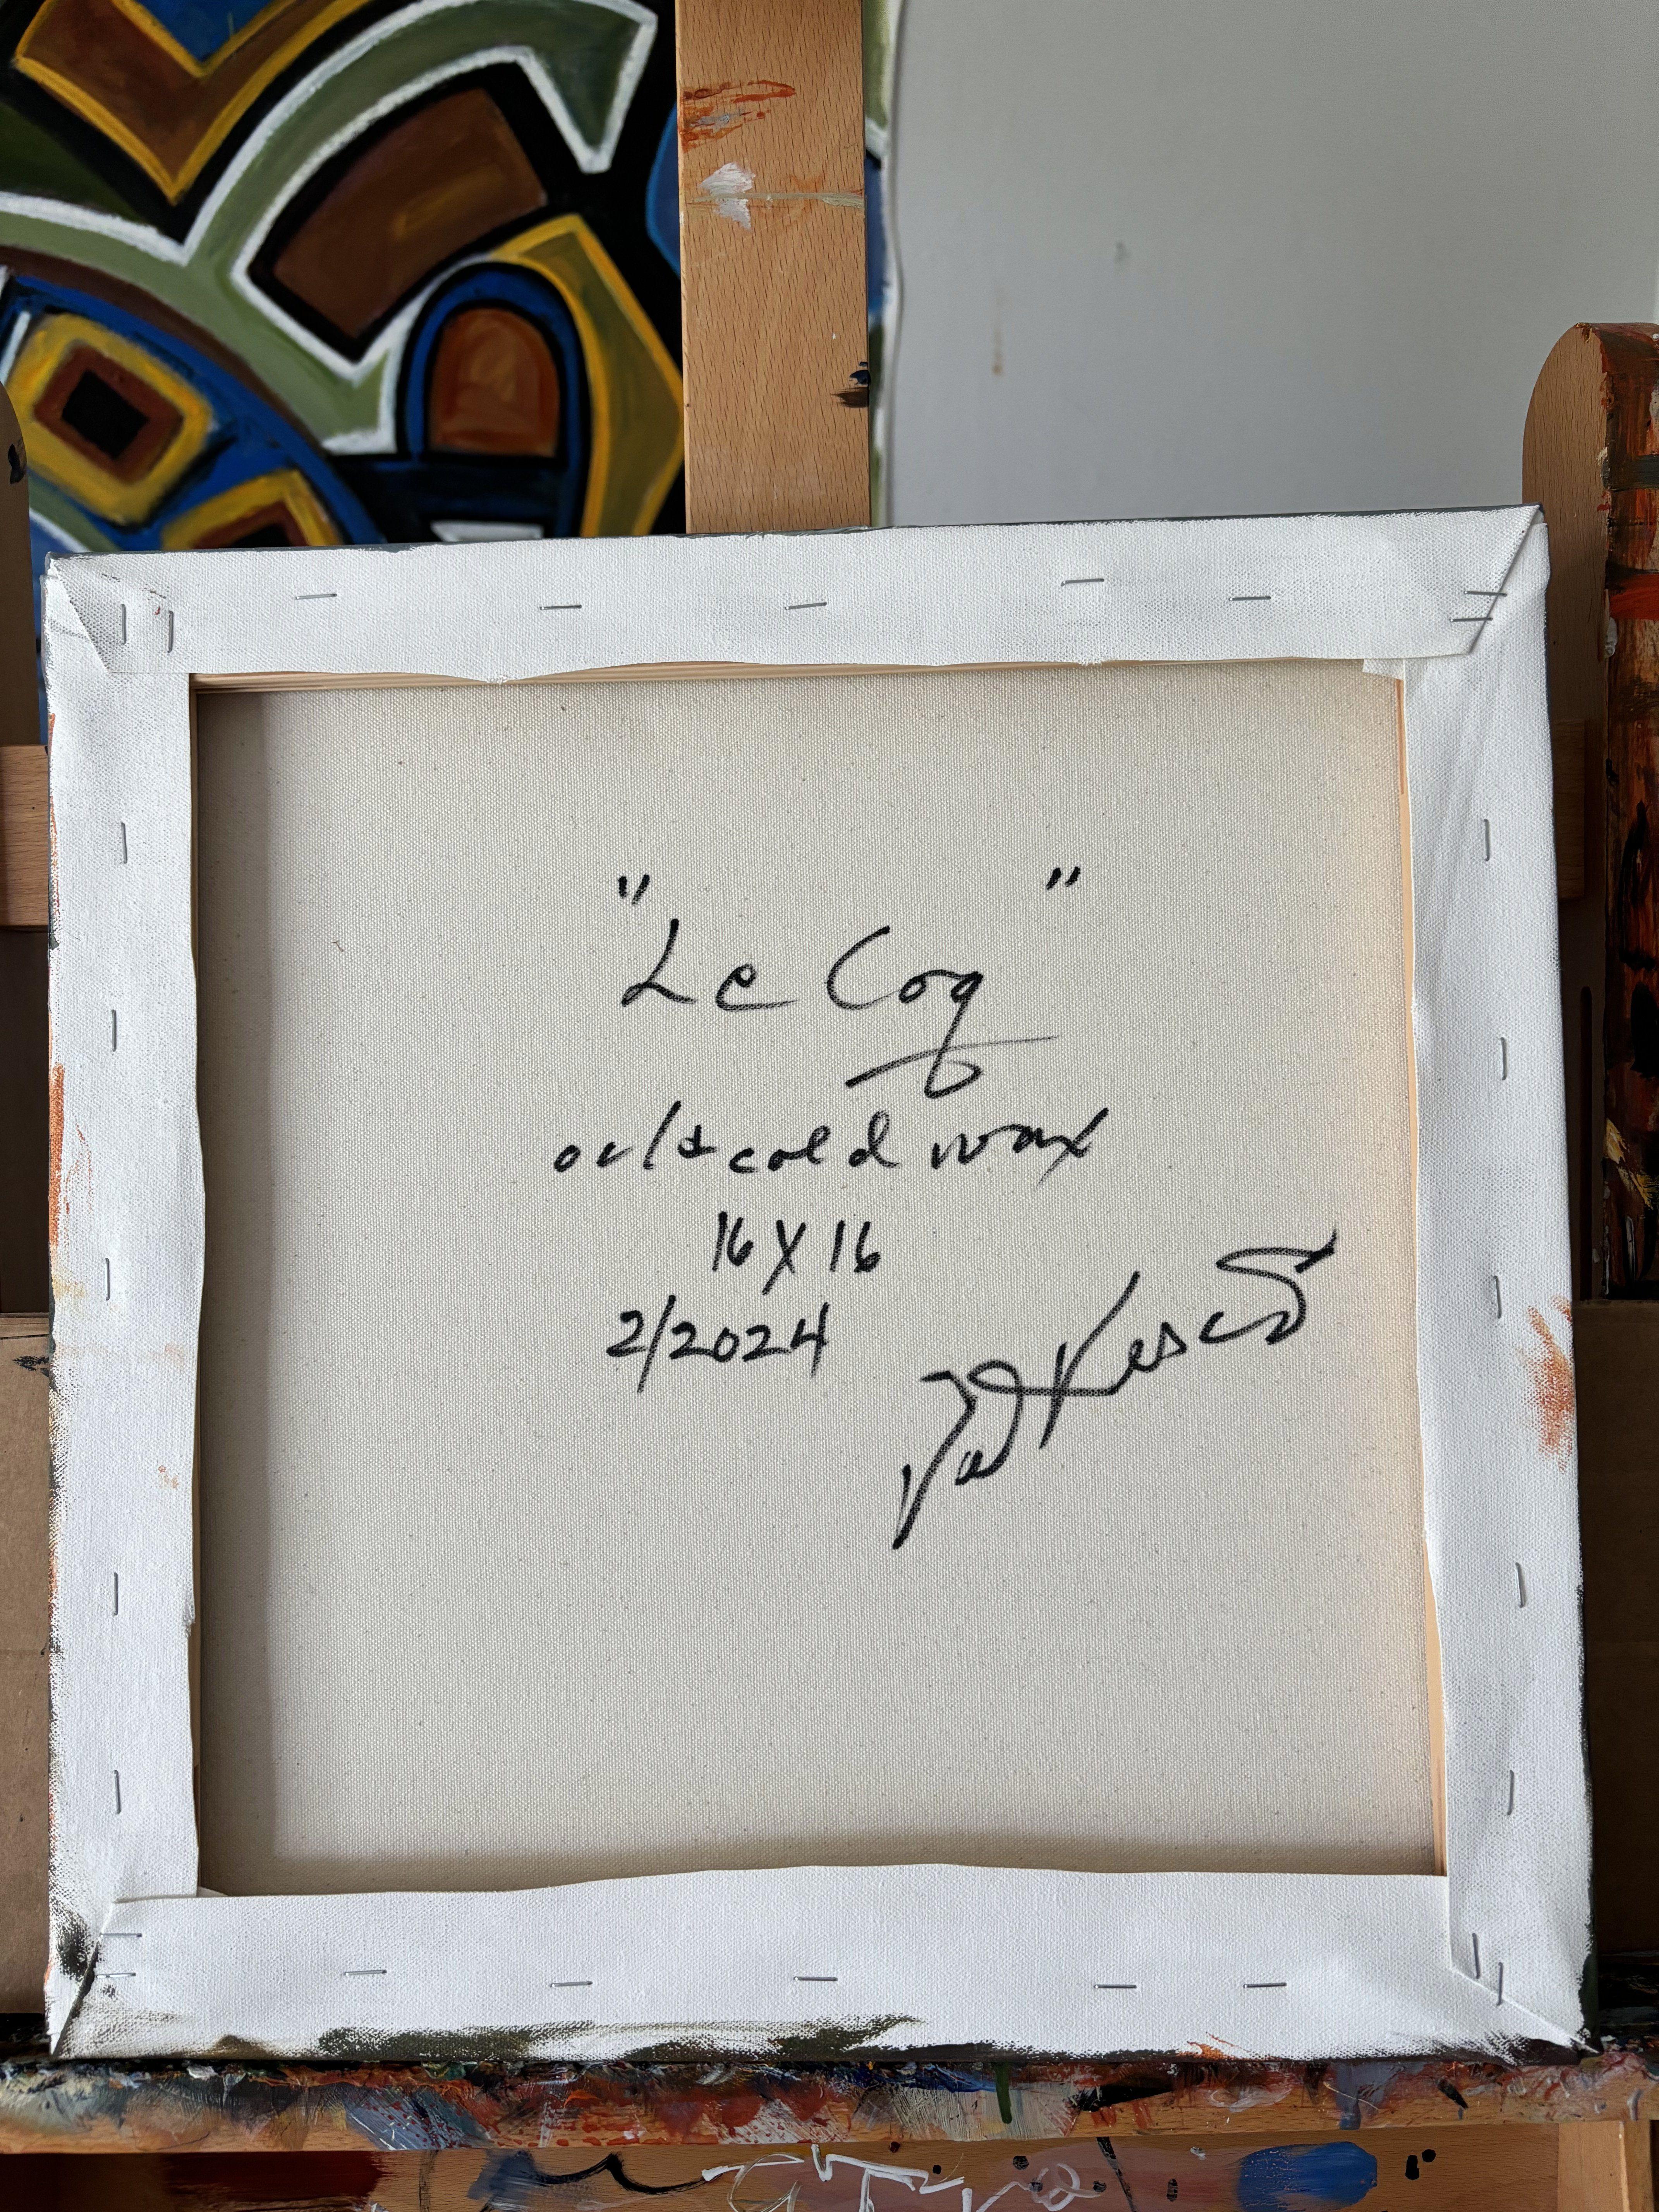 "Le Coq"
oil & cold wax
16 X 16
2/2024